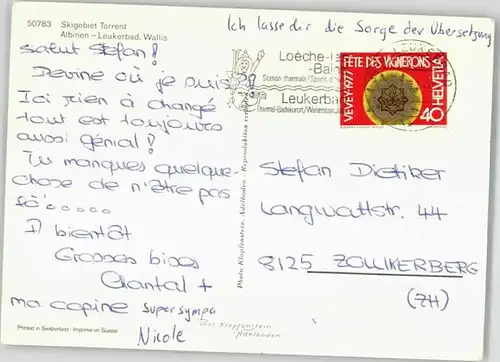 50783 Skigebiet Torrent
Albinen – Leukerbad. Wallis
Ich lasse dir die Sorge der Übersetzung
Salut Stefan!
Devine où je suis?
Ici rien à changé
tout est toujours
aussi génial!
Tu manques quelque-
chose de n'être pas
là.....
A bientôt
Grosses bises
Chantal +
ma copine supersympa
Nicole
Printed in Switzerland - Imprimé en Suisse
Photo Klopfenstein, Adelboden - Reproduktion
Phot. Klopfenstein
Adelboden
Loèche-
-Bain
Station thermale/Sports d'
Leukerbad
Thermal-Badekurort/Wintersport
VEVEY 1977 FÊTE DES VIGNERONS
HELVETIA
40
Stefan Dietiker
Langwattstr. 44
8125 ZOLLIKERBERG
(ZH)